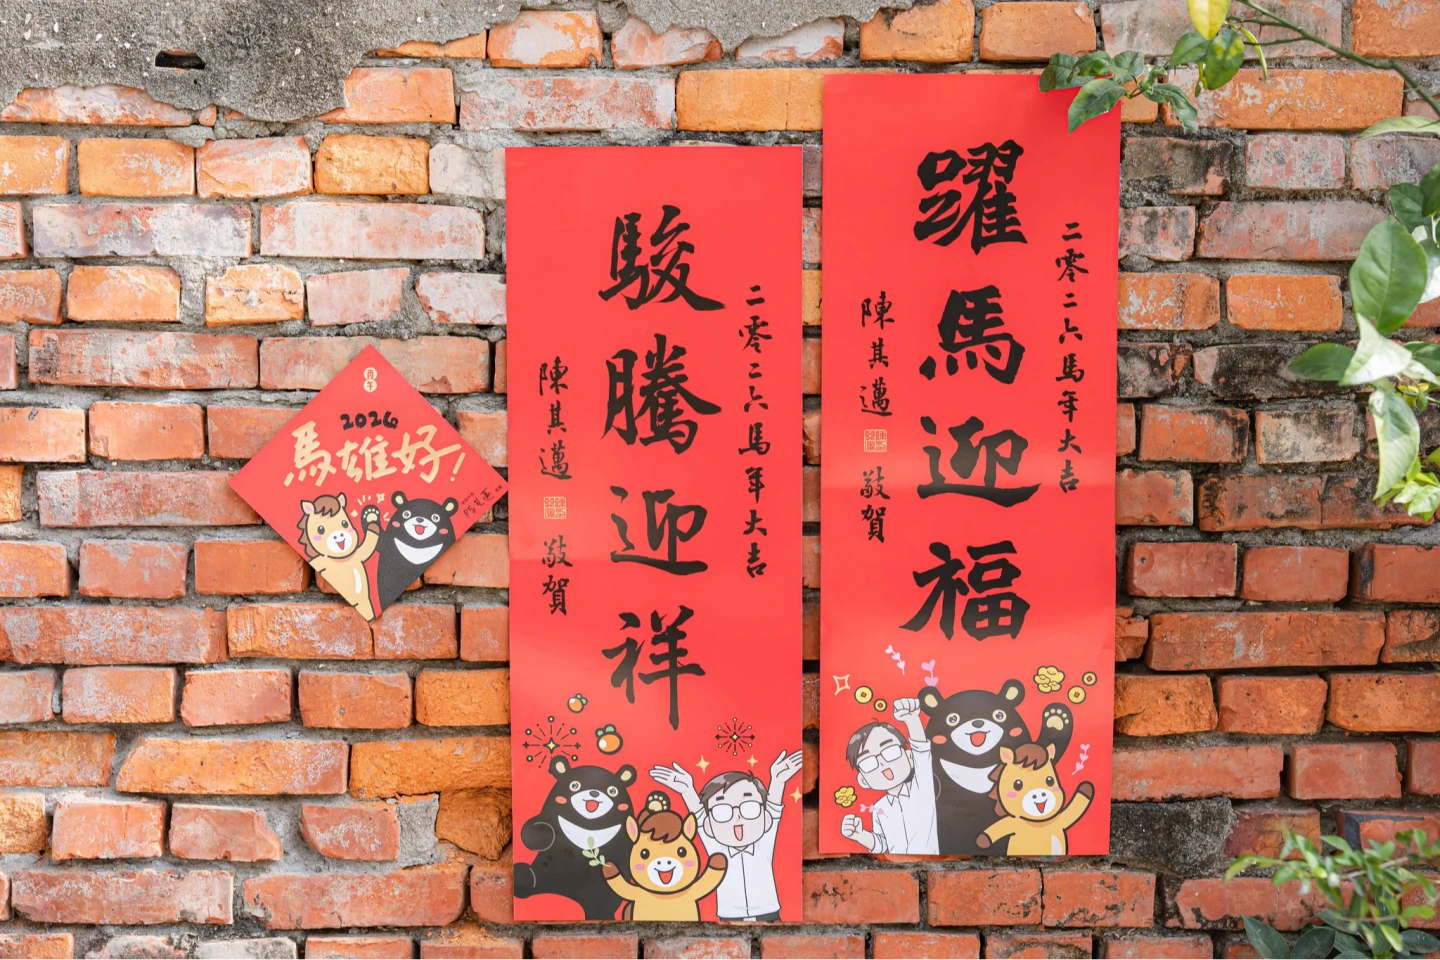 躍馬迎福
二零二六馬年大吉
陳其邁
敬賀
駿騰迎祥
二零二六馬年大吉
陳其邁
敬賀
2026
馬雄好!